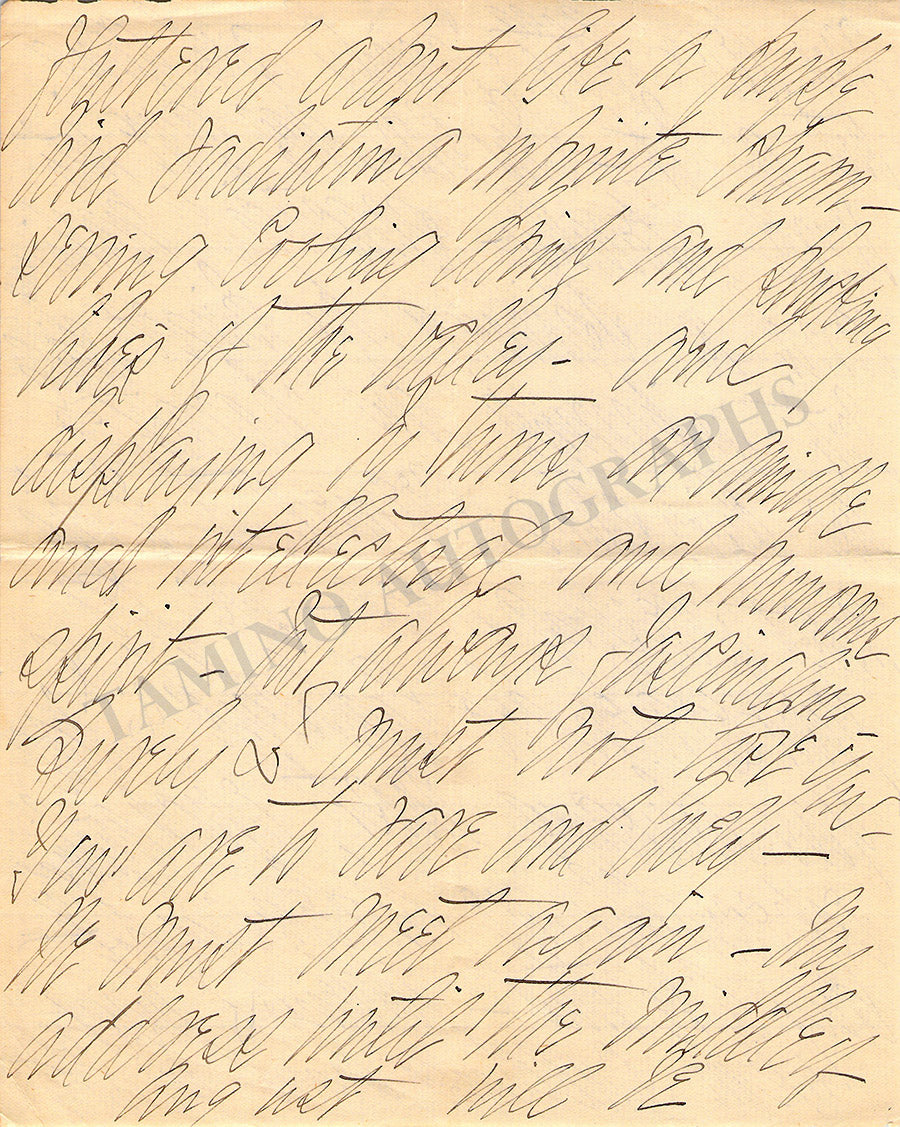 fluttered about like a
bird radiating infinite charm –
serving cooling drinks and
lilies of the valley – and
displaying by turns an amiable
and intellectual and humorous
spirit – but always fascinating –
Surely I must not lose you –
You are to rare and lovely –
We must meet again – My
address until the middle of
August will be
TAMINO AUTOGRAPHS